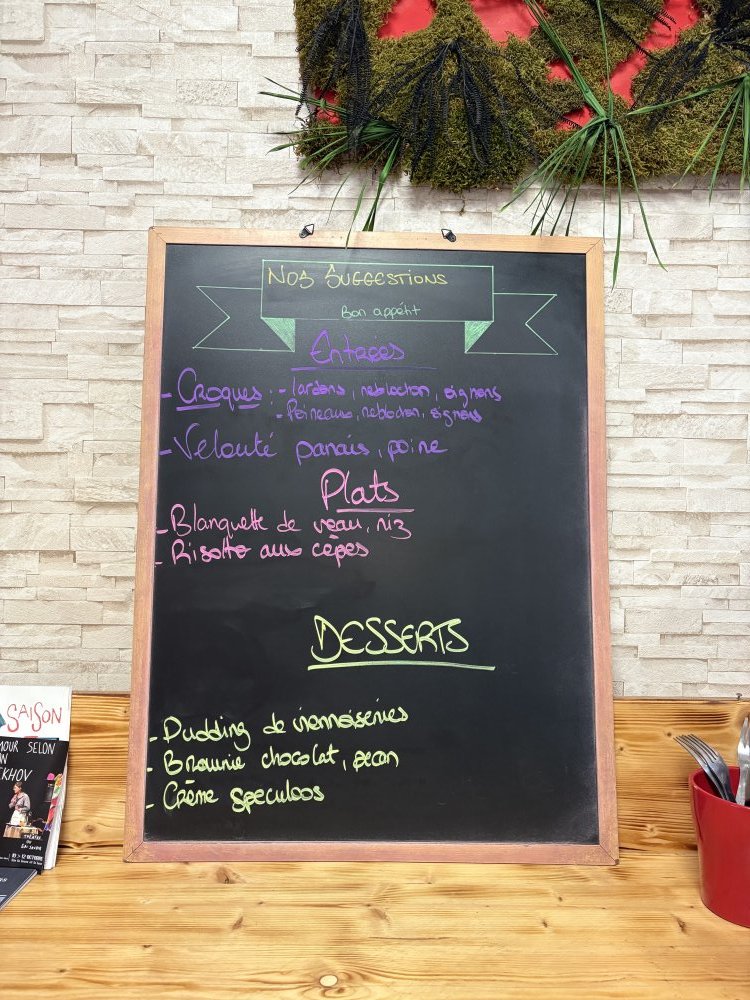 NOS SUGGESTIONS
Bon appétit
Entrées
- Croques : - lardons, reblochon, oignons
- Poireaux, reblochon, oignons
- Velouté panais, poire
Plats
- Blanquette de veau, riz
- Risotto aux cèpes
DESSERTS
- Pudding de viennoiseries
- Brownie chocolat, pecan
- Crème speculoos
SAISON
MOUR SELON
KHOV